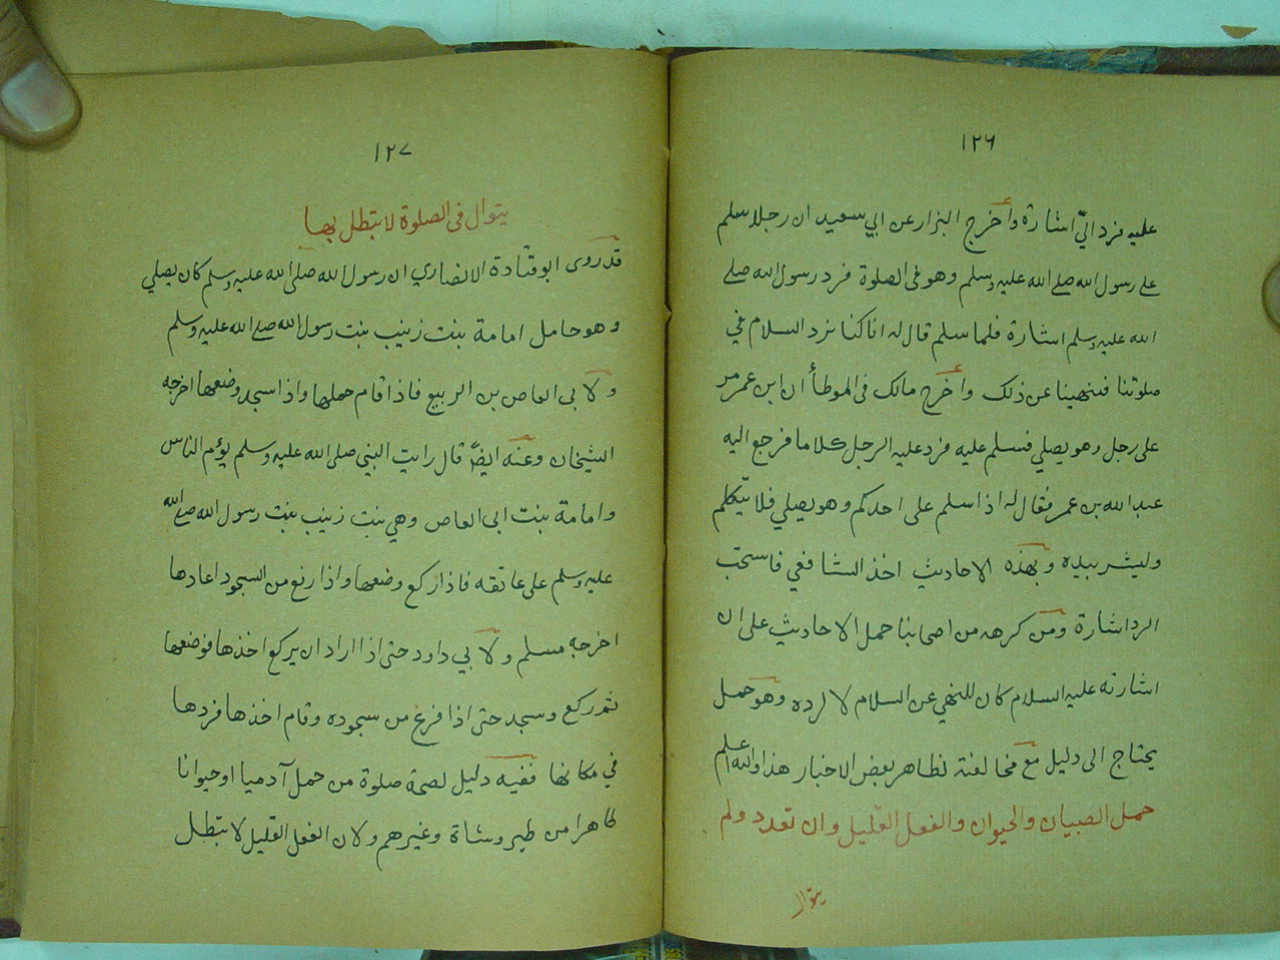 ١٢٦
عليه فرد اليّ اشارة وأخرج البزار عن ابي سعيد ان رجلا سلم
على رسول الله صلى الله عليه وسلم وهو فى الصلوة فرد رسول الله صلى
الله عليه وسلم اشارة فلما سلم قال له انا كنا نرد السلام في
صلوتنا فنهينا عن ذلك وأخرج مالك فى الموطأ ان ابن عمر مر
على رجل وهو يصلي فسلم عليه فرد عليه الرجل كلاما فرجع اليه
عبد الله بن عمر فقال له اذا سلم على احدكم وهو يصلي فلا يتكلم
وليشر بيده وبهذه الاحاديث اخذ الشافعي فاستحب
الرد اشارة ومن كرهه من اصحابنا حمل الاحاديث على ان
اشارته عليه السلام كان للنهي عن السلام لا لرده وهو حمل
يحتاج الى دليل مع مخالفته لظاهر بعض الاخبار هذا والله اعلم
حمل الصبيان والحيوان والفعل القليل وان تعدد ولم
يتوال
١٢٧
يتوال فى الصلوة لا تبطل بها
قد روى ابو قتادة الانصاري ان رسول الله صلى الله عليه وسلم كان يصلي
وهو حامل امامة بنت زينب بنت رسول الله صلى الله عليه وسلم
ولابى العاص بن الربيع فاذا قام حملها واذا سجد وضعها اخرجه
الشيخان وعنه ايضً قال رايت النبي صلى الله عليه وسلم يؤم الناس
وامامة بنت ابى العاص وهي بنت زينب بنت رسول الله صلى الله
عليه وسلم على عاتقه فاذا ركع وضعها واذا رفع من السجود اعادها
اخرجه مسلم ولابي داود حتى اذا اراد ان يركع اخذها فوضعها
ثم ركع وسجد حتى اذا فرغ من سجوده وقام اخذها فردها
في مكانها ففيه دليل لصحة صلوة من حمل آدميا او حيوانا
طاهرا من طير وشاة وغيرهم ولان الفعل القليل لا تبطل